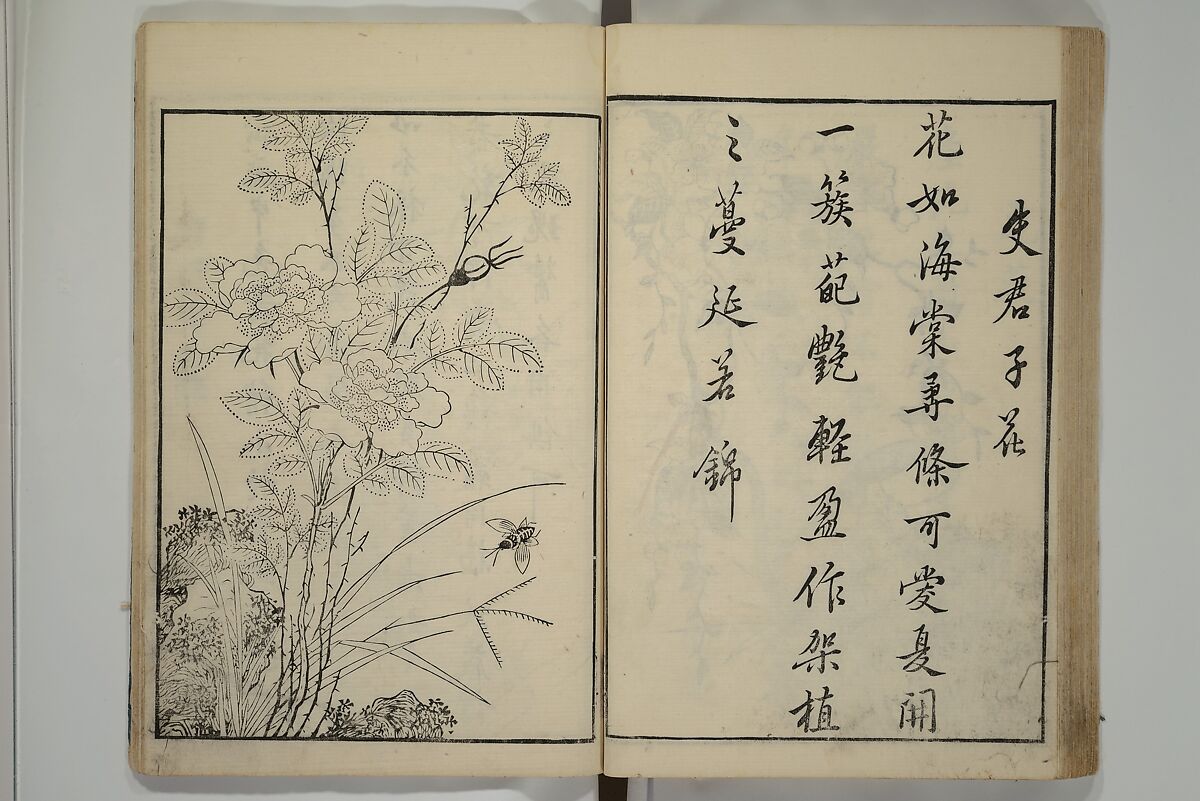 史君子花
花如海棠柔條可愛夏開
一簇葩艷軽盈作架植
之蔓延若錦